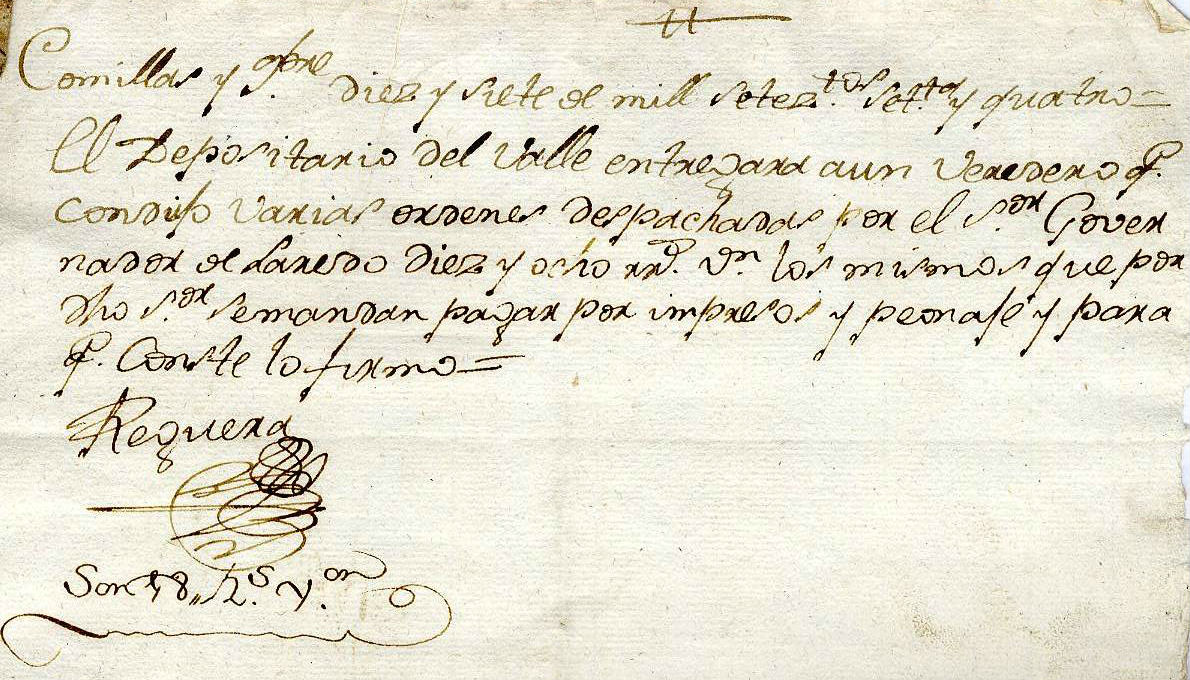 Comillas y sp.bre Diez y siete de mill setez.tos set.ta y quatro=
El Depositario del Valle entregara aun Veredero q.
Condujo varias ordenes despachadas por el s.or Gover
nador de Laredo Diez y ocho rr.s v.n los mismos que por
dho s.or semandan pagar por impresos y peonaje y para
q. Conste lo firmo=
Reguera
Son 18,, R.s V.on